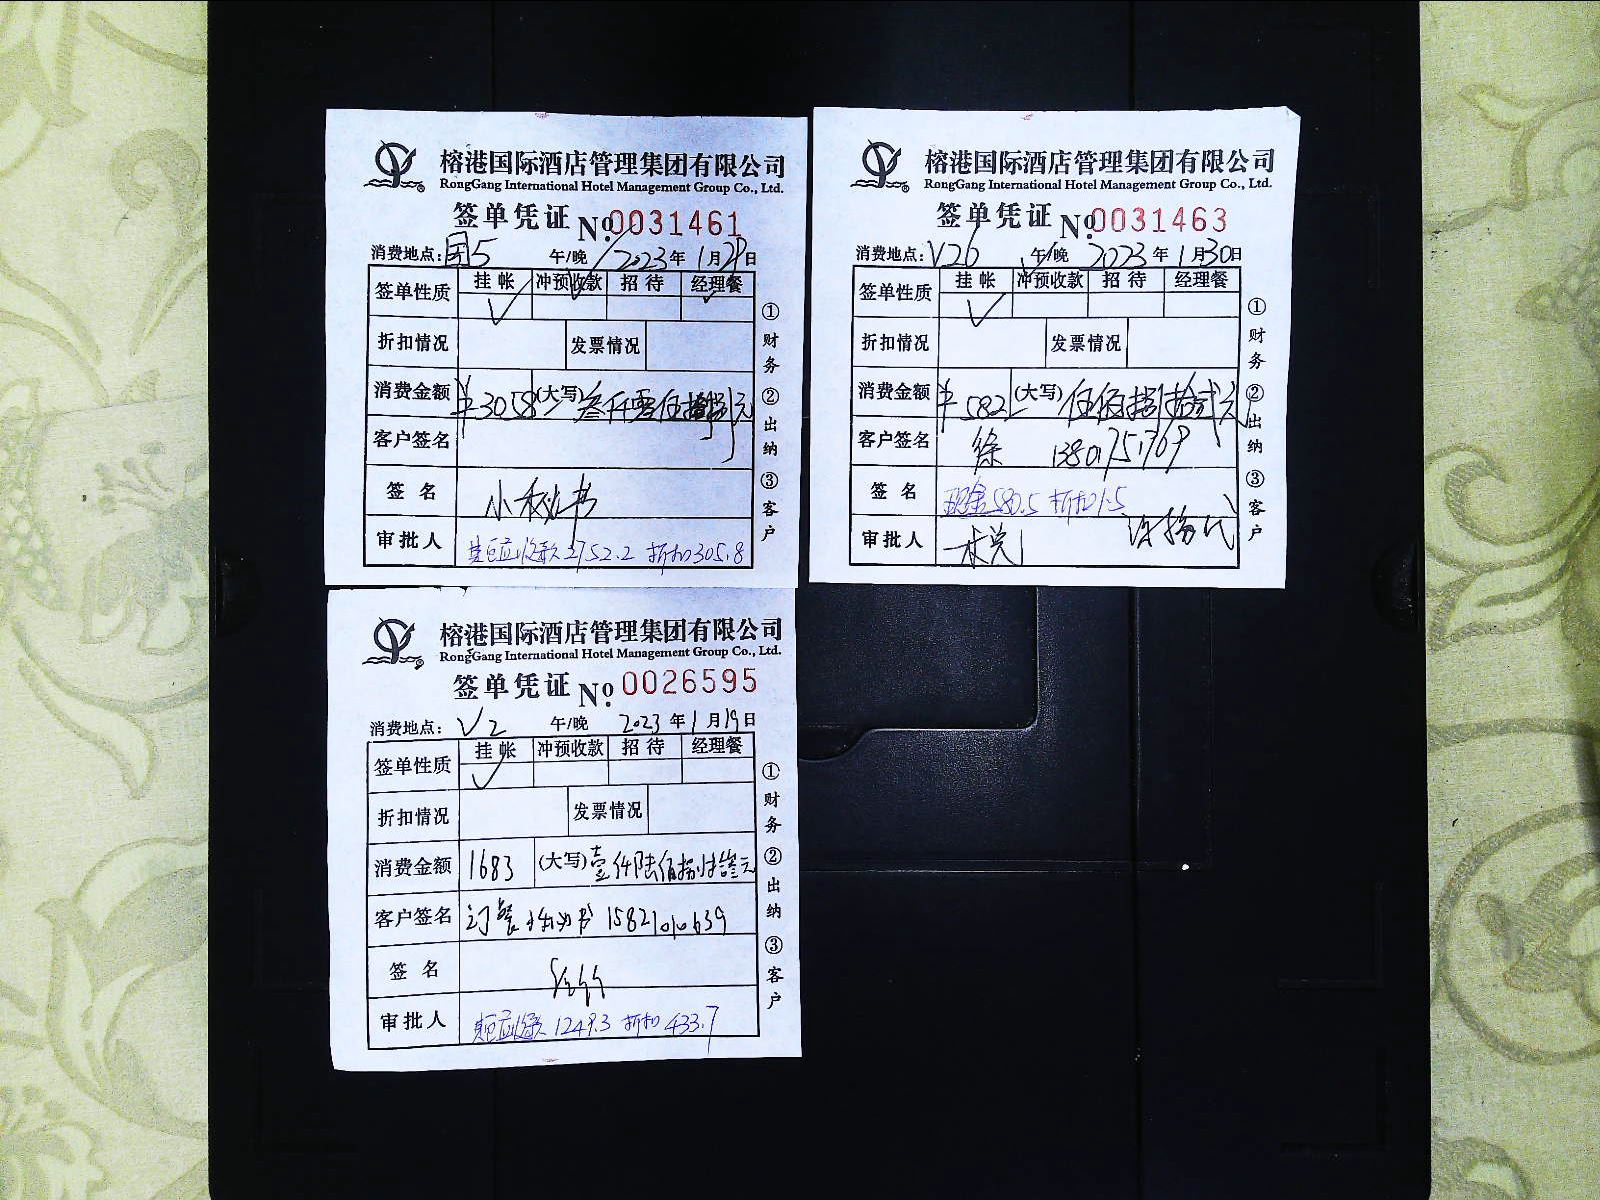 榕港国际酒店管理集团有限公司
RongGang International Hotel Management Group Co., Ltd.
签单凭证 No. 0031461
消费地点: 国5 午/晚 2023年1月29日
签单性质 挂帐 冲预收款 招待 经理餐
折扣情况 发票情况
消费金额 ¥3058 (大写) 叁仟零伍拾捌元
客户签名
签名 小秘书
审批人 其它应收款2752.2 折扣305.8
①财务 ②出纳 ③客户
榕港国际酒店管理集团有限公司
RongGang International Hotel Management Group Co., Ltd.
签单凭证 No. 0031463
消费地点: V26 午/晚 2023年1月30日
签单性质 挂帐 冲预收款 招待 经理餐
折扣情况 发票情况
消费金额 ¥582 (大写) 伍佰捌拾贰元
客户签名 徐 13801751769
签名 现金580.5 折扣1.5
审批人
①财务 ②出纳 ③客户
榕港国际酒店管理集团有限公司
RongGang International Hotel Management Group Co., Ltd.
签单凭证 No. 0026595
消费地点: V2 午/晚 2023年1月19日
签单性质 挂帐 冲预收款 招待 经理餐
折扣情况 发票情况
消费金额 1683 (大写) 壹仟陆佰捌拾叁元
客户签名 订餐小秘书 15821010639
签名
审批人 其它应收款 1249.3 折扣 433.7
①财务 ②出纳 ③客户